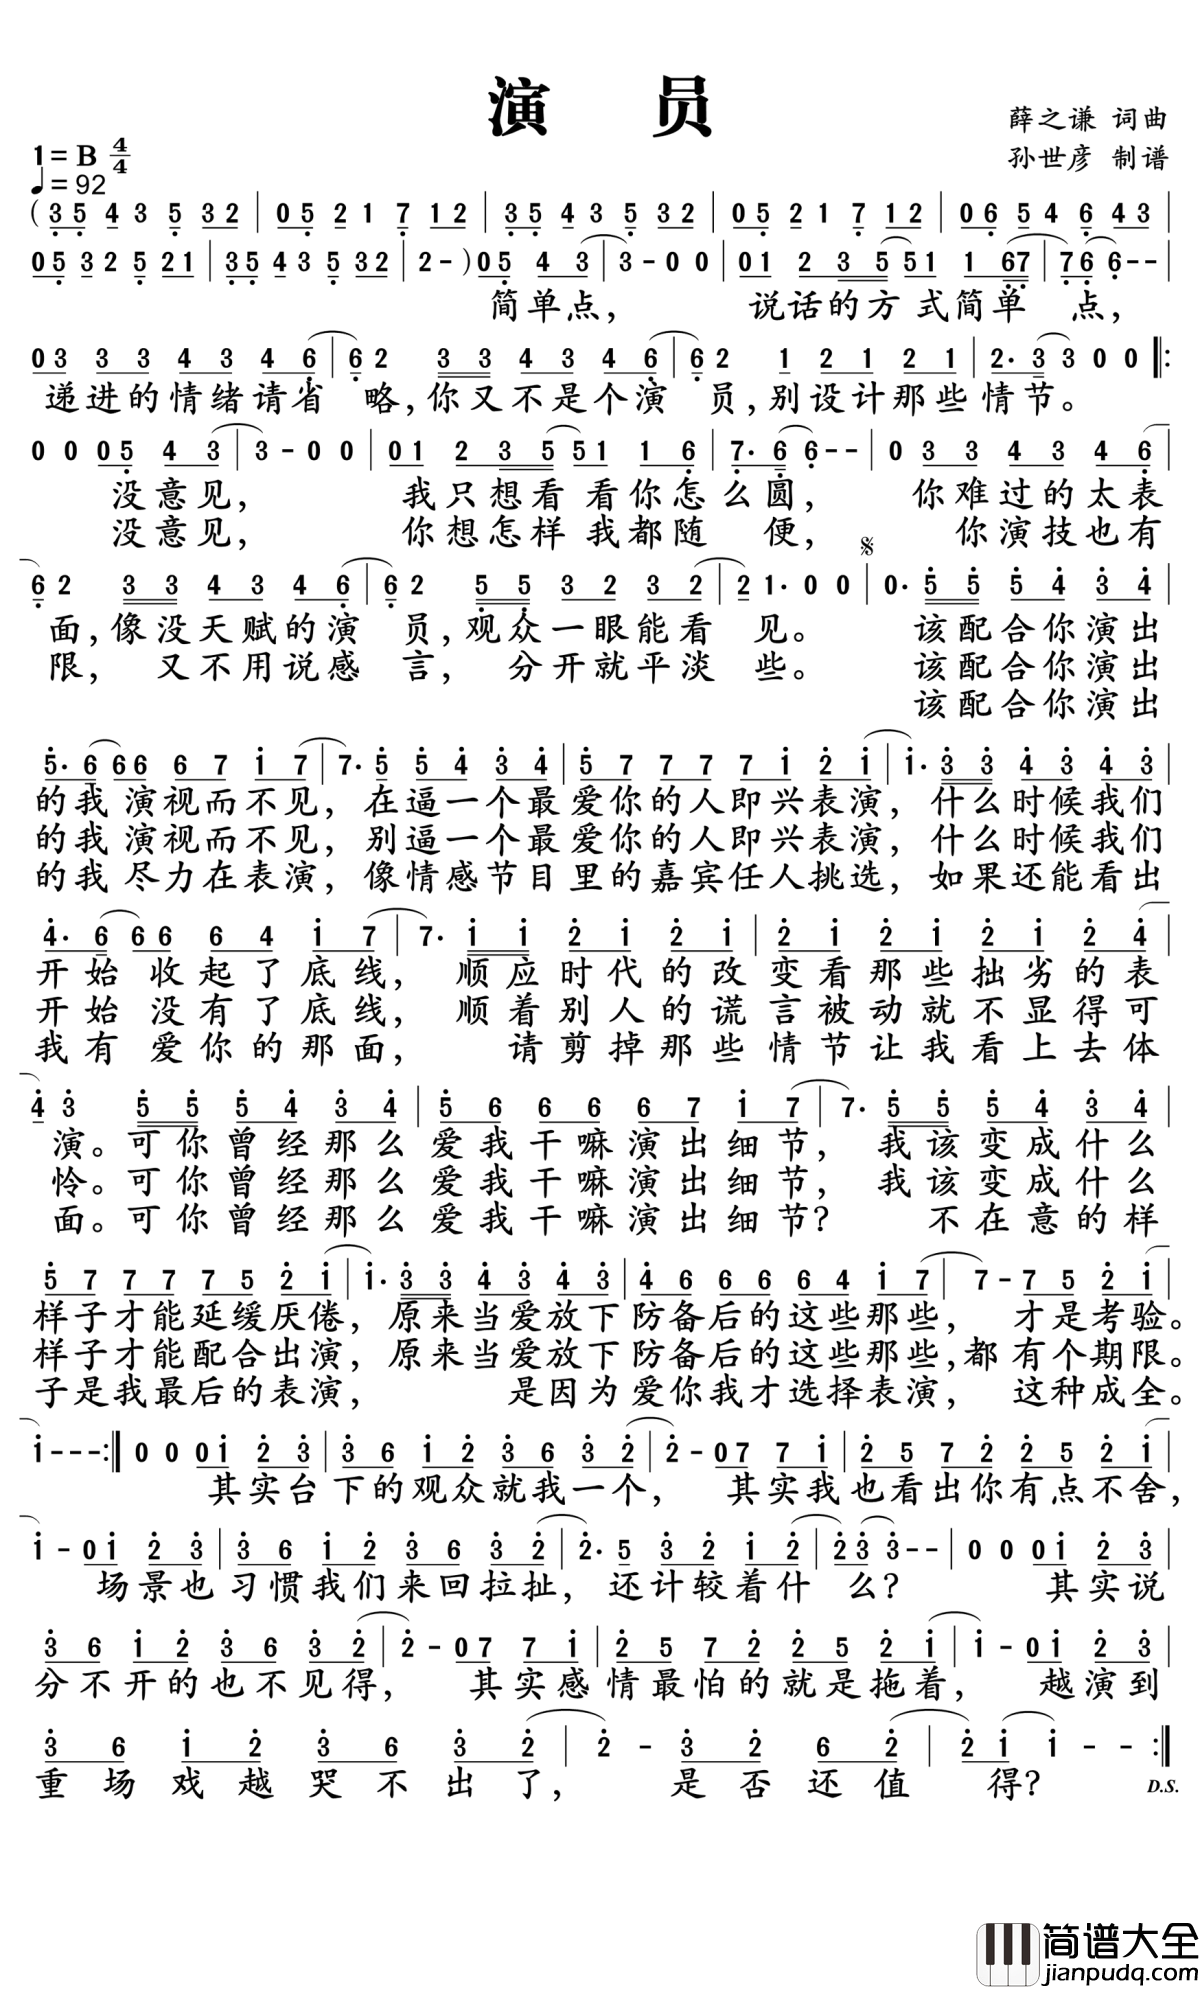 演 员
薛之谦 词曲
孙世彦 制谱
1= B 4/4
♩= 92
( 3 5 4 3 5 3 2 | 0 5 2 1 7 1 2 | 3 5 4 3 5 3 2 | 0 5 2 1 7 1 2 | 0 6 5 4 6 4 3
0 5 3 2 5 2 1 | 3 5 4 3 5 3 2 | 2 - ) 0 5 4 3 | 3 - 0 0 | 0 1 2 3 5 5 1 1 6 7 | 7 6 6 - -
简单点， 说话的方式简单 点，
0 3 3 3 4 3 4 6 | 6 2 3 3 4 3 4 6 | 6 2 1 2 1 2 1 | 2· 3 3 0 0 ‖:
递进的情绪请省 略，你又不是个演 员，别设计那些情节。
0 0 0 5 4 3 | 3 - 0 0 | 0 1 2 3 5 5 1 1 6 | 7· 6 6 - - | 0 3 3 4 3 4 6 |
没意见， 我只想看看你怎么圆， 你难过的太表
没意见， 你想怎样我都随 便， 你演技也有
6 2 3 3 4 3 4 6 | 6 2 5 5 3 2 3 2 | 2 1· 0 0 | 0· 5 5 5 4 3 4 |
面，像没天赋的演 员，观众一眼能看 见。 该配合你演出
限， 又不用说感 言， 分开就平淡 些。 该配合你演出
该配合你演出
5· 6 6 6 6 7 1 7 | 7· 5 5 4 3 4 | 5 7 7 7 7 1 2 1 | 1· 3 3 4 3 4 3 |
的我 演视而不见，在逼一个最爱你的人即兴表演，什么时候我们
的我 演视而不见，别逼一个最爱你的人即兴表演，什么时候我们
的我 尽力在表演，像情感节目里的嘉宾任人挑选，如果还能看出
4· 6 6 6 6 4 1 7 | 7· 1 1 2 1 2 1 | 2 1 2 1 2 1 2 4 |
开始 收起了底线， 顺应时代的改变看那些拙劣的表
开始 没有了底线， 顺着别人的谎言被动就不显得可
我有 爱你的那面， 请剪掉那些情节让我看上去体
4 3 5 5 5 4 3 4 | 5 6 6 6 6 7 1 7 | 7· 5 5 5 4 3 4 |
演。可你曾经那么爱我干嘛演出细节， 我该变成什么
怜。可你曾经那么爱我干嘛演出细节， 我该变成什么
面。可你曾经那么爱我干嘛演出细节？ 不在意的样
5 7 7 7 7 5 2 1 | 1· 3 3 4 3 4 3 | 4 6 6 6 6 4 1 7 | 7 - 7 5 2 1 |
样子才能延缓厌倦，原来当爱放下防备后的这些那些， 才是考验。
样子才能配合出演，原来当爱放下防备后的这些那些，都有个期限。
子是我最后的表演， 是因为爱你我才选择表演， 这种成全。
1 - - - :‖ 0 0 0 1 2 3 | 3 6 1 2 3 6 3 2 | 2 - 0 7 7 1 | 2 5 7 2 2 5 2 1 |
其实台下的观众就我一个， 其实我也看出你有点不舍，
1 - 0 1 2 3 | 3 6 1 2 3 6 3 2 | 2· 5 3 2 1 2 | 2 3 3 - - | 0 0 0 1 2 3 |
场景也习惯我们来回拉扯，还计较着什 么？ 其实说
3 6 1 2 3 6 3 2 | 2 - 0 7 7 1 | 2 5 7 2 2 5 2 1 | 1 - 0 1 2 3 |
分不开的也不见得， 其实感情最怕的就是拖着， 越演到
3 6 1 2 3 6 3 2 | 2 - 3 2 6 2 | 2 1 1 - - :‖
重场戏越哭不出了， 是否还值 得？ D.S.
简谱大全
jianpudq.com